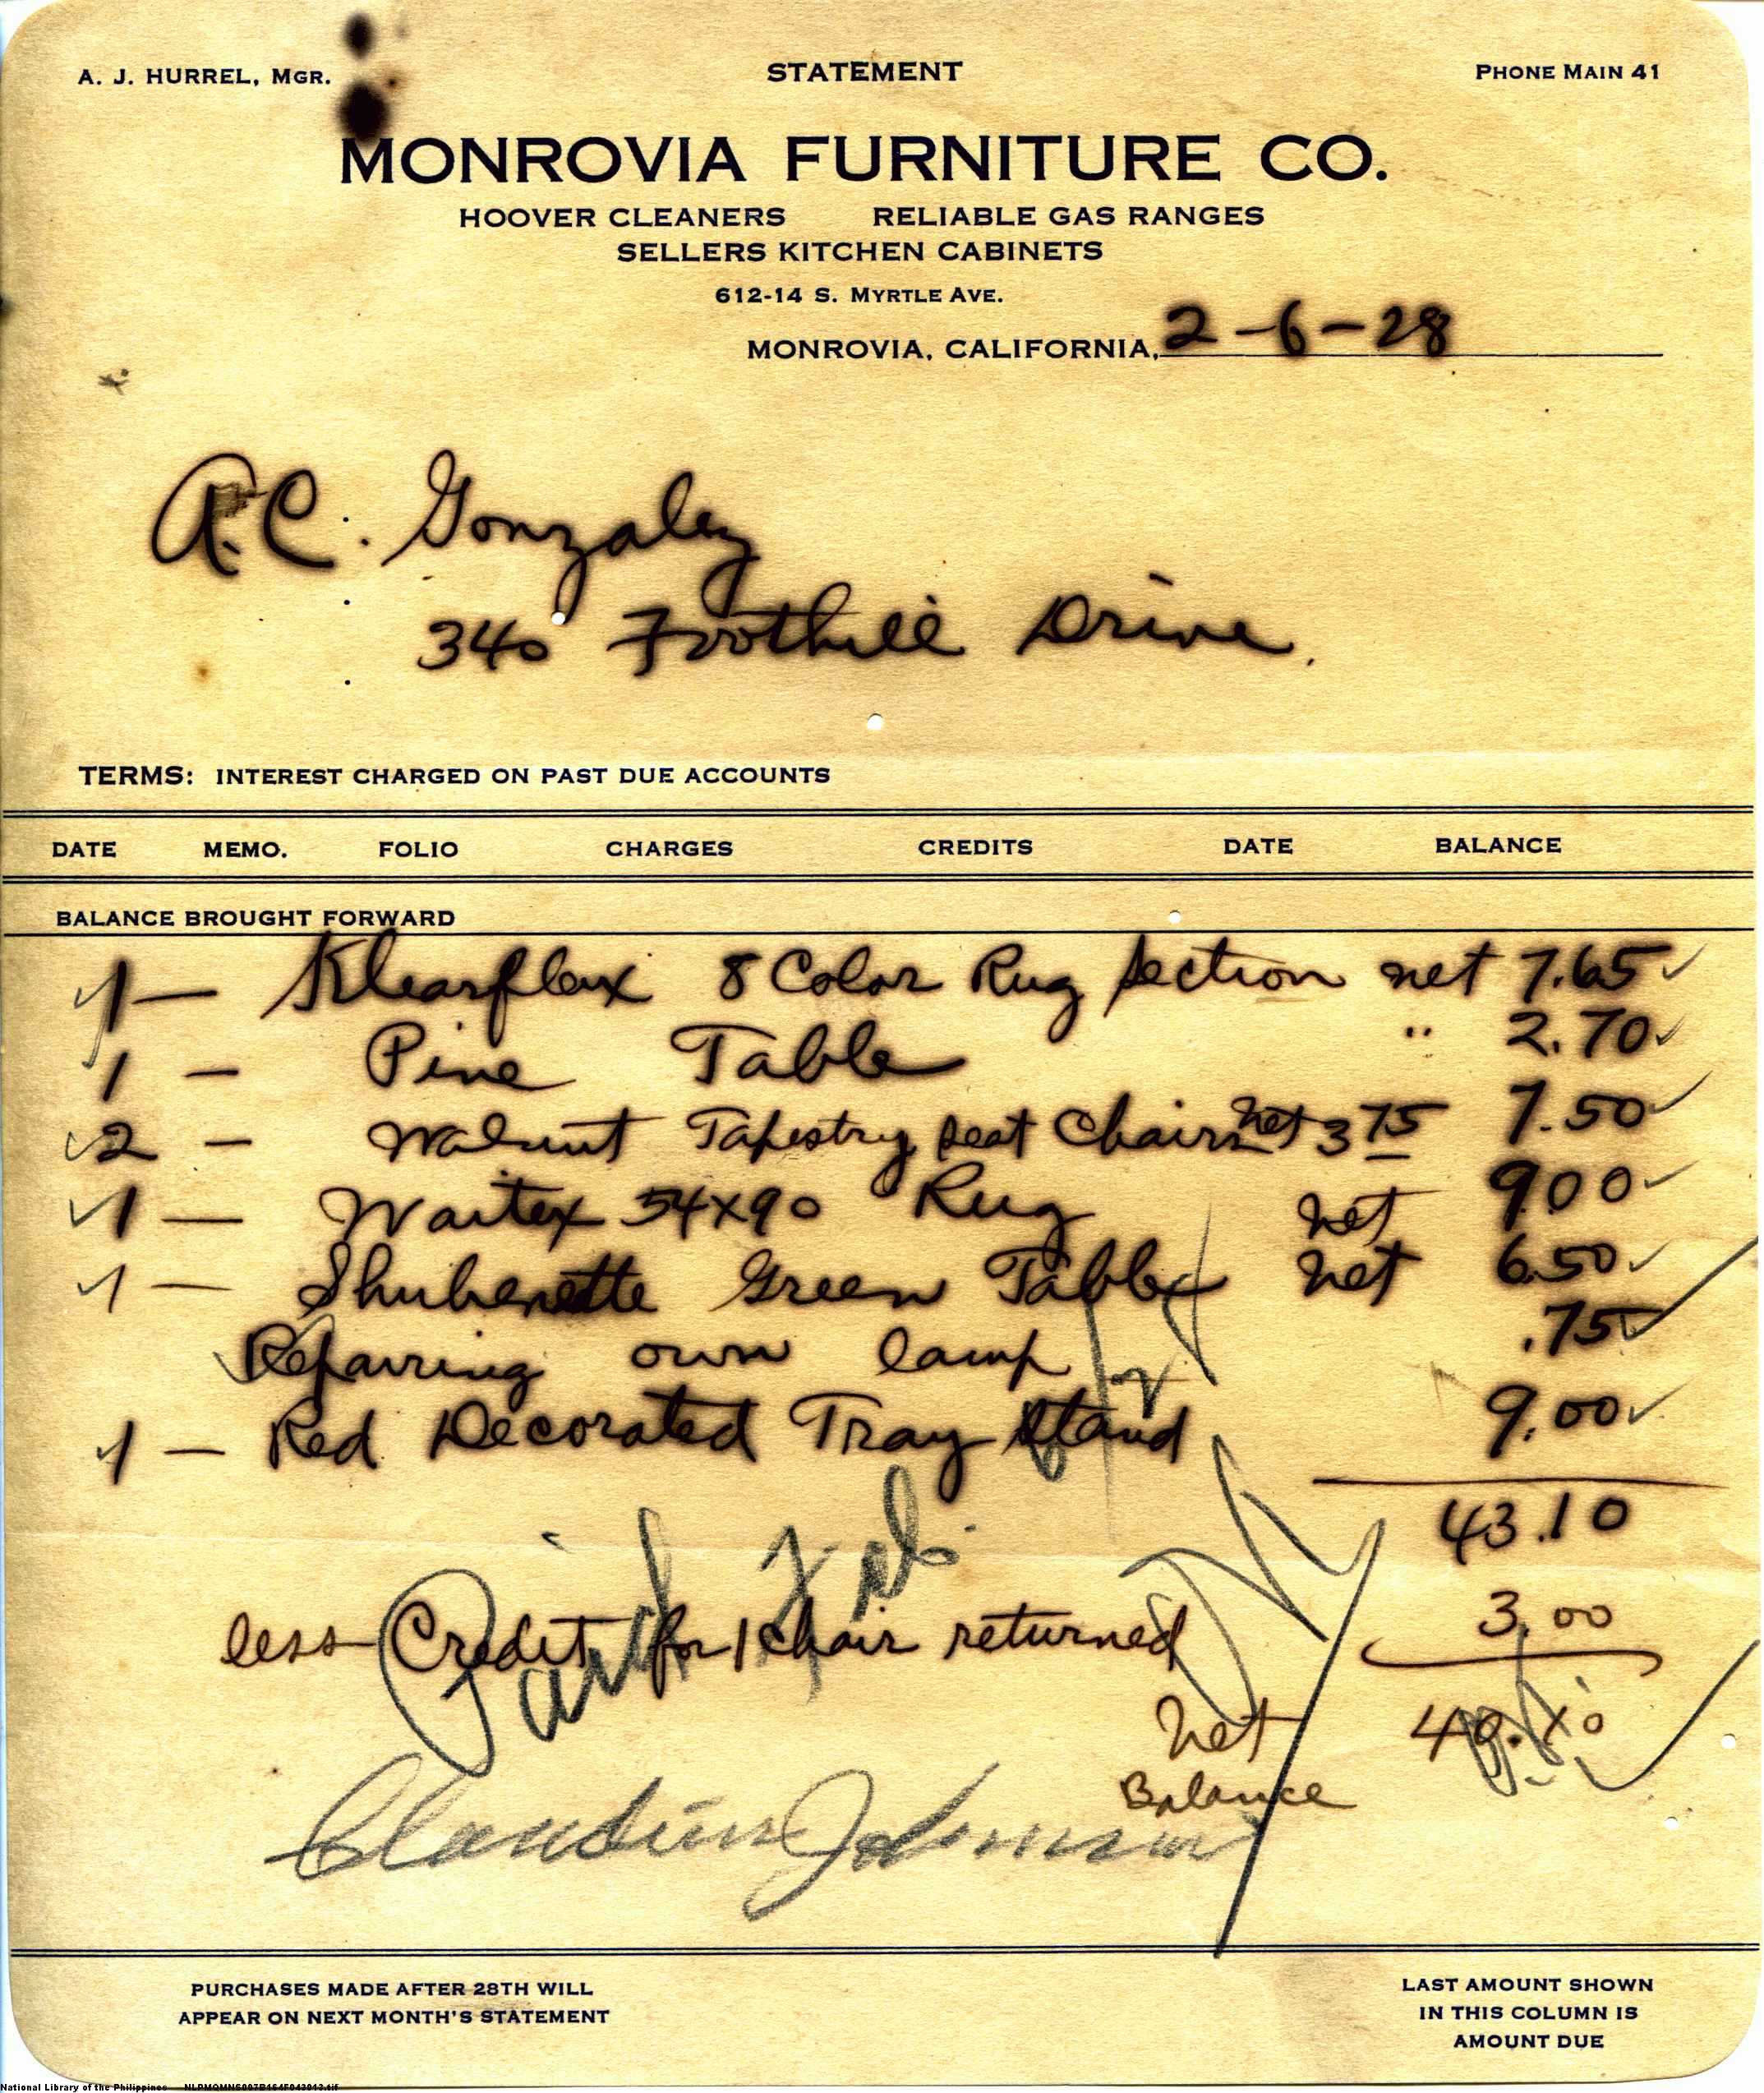 A. J. HURREL, MGR. STATEMENT PHONE MAIN 41
MONROVIA FURNITURE CO.
HOOVER CLEANERS RELIABLE GAS RANGES
SELLERS KITCHEN CABINETS
612-14 S. MYRTLE AVE.
MONROVIA, CALIFORNIA, 2-6-28
A.C. Gonzalez
340 Foothill Drive.
TERMS: INTEREST CHARGED ON PAST DUE ACCOUNTS
DATE MEMO. FOLIO CHARGES CREDITS DATE BALANCE
BALANCE BROUGHT FORWARD
1 — Klearflax 8 Color Rug Section net 7.65
1 — Pine Table " 2.70
2 — Walnut Tapestry seat Chairs net 3 75 7.50
1 — Waitex 54x90 Rug net 9.00
1 — Green Table net 6.50
Repairing own lamp .75
1 — Red Decorated Tray Stand 9.00
43.10
less Credit for 1 chair returned 3.00
Paid Feb.
Net Balance 40.10
PURCHASES MADE AFTER 28TH WILL
APPEAR ON NEXT MONTH'S STATEMENT
LAST AMOUNT SHOWN
IN THIS COLUMN IS
AMOUNT DUE
National Library of the Philippines